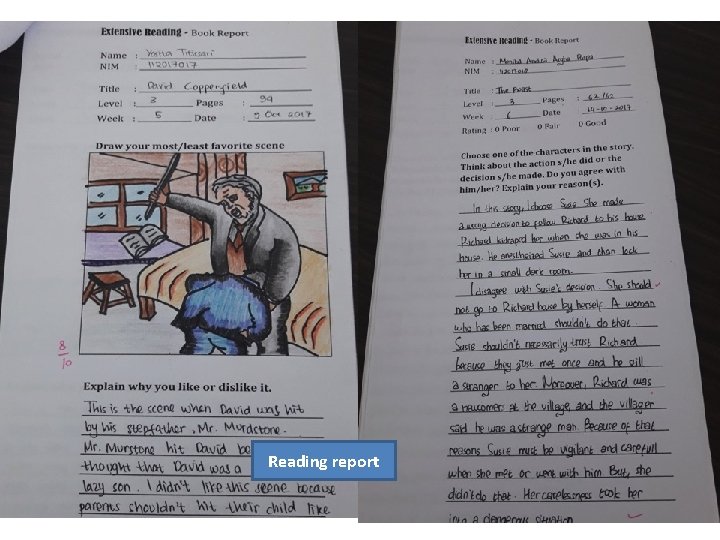 Extensive Reading - Book Report
Name :
NIM : 112017017
Title : David Copperfield
Level : 3 Pages : 94
Week : 5 Date : 9 Oct 2017
Draw your most/least favorite scene
8/10
Explain why you like or dislike it.
This is the scene when David was hit
by his stepfather, Mr. Murdstone.
Mr. Murstone hit David be
thought that David was a
lazy son. I didn't like this scene because
parents shouldn't hit their child like
Extensive Reading - Book Report
Name :
NIM :
Title :
Level : 3 Pages : 62/60
Week : 6 Date : 14-10-2017
Rating : O Poor O Fair O Good
Choose one of the characters in the story.
Think about the action s/he did or the
decision s/he made. Do you agree with
him/her? Explain your reason(s).
In this story, I choose Susie. She made
a wrong decision to follow Richard to his house
Richard kidnaped her when she was in his
house. He anesthetized Susie and then lock
her in a small dark room.
I disagree with Susie's decision. She should
not go to Richard house by herself. A woman
who has been married shouldn't do that.
Susie shouldn't necessarily trust Richard
because they just met once and he still
a stranger to her. Moreover, Richard was
a newcomer at the village, and the villager
said he was a strange man. Because of that
reasons Susie must be vigilant and carefull
when she met or went with him But, she
didn't do that. Her carelessness took her
into a dangerous situation
Reading report